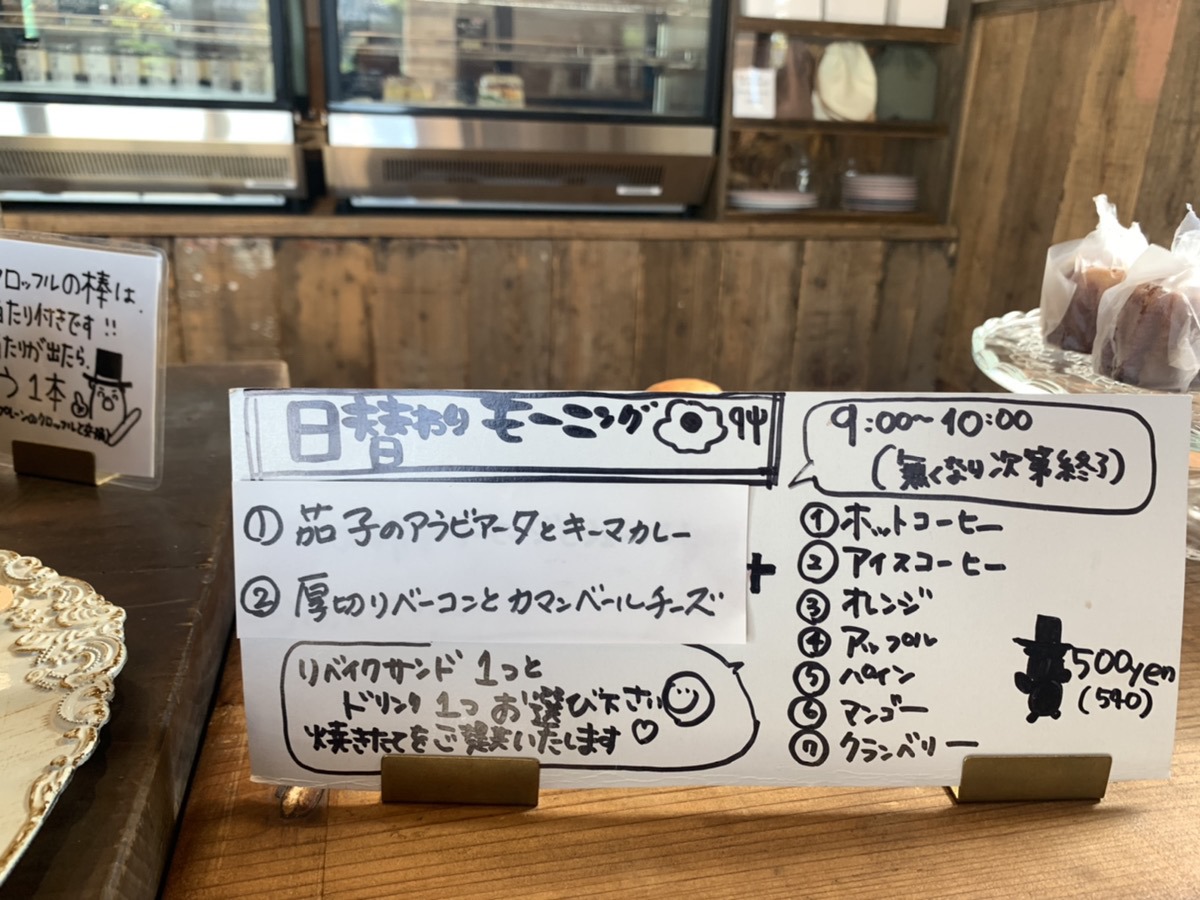 ロッフルの棒は
たり付きです!!
たりが出たら、
1本
日替わりモーニング
9:00~10:00
(無くなり次第終了)
① 茄子のアラビアータとキーマカレー
② 厚切りベーコンとカマンベールチーズ
+
①ホットコーヒー
②アイスコーヒー
③オレンジ
④アップル
⑤パイン
⑥マンゴー
⑦クランベリー
リベイクサンド 1つと
ドリンク 1つ お選び下さい
焼きたてをご提供いたします♡
500yen
(540)